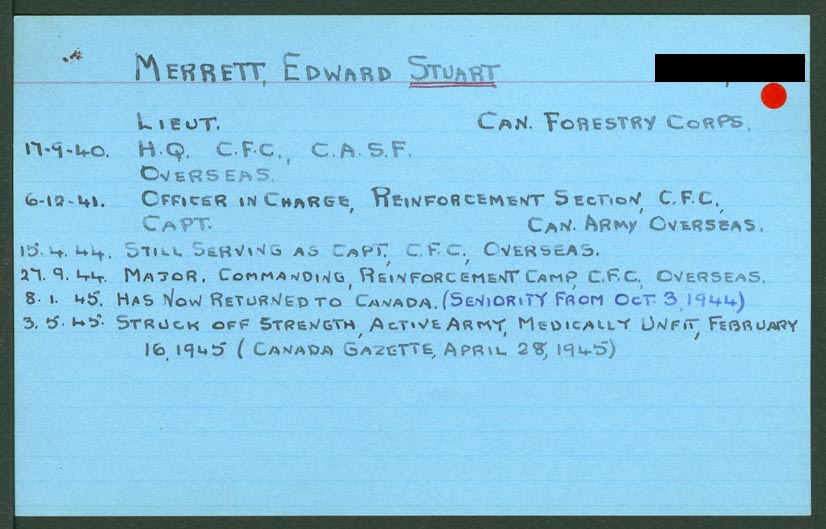 MERRETT, EDWARD STUART
LIEUT. CAN. FORESTRY CORPS.
17-9-40. H.Q. C.F.C., C.A.S.F.
OVERSEAS.
6-12-41. OFFICER IN CHARGE, REINFORCEMENT SECTION, C.F.C.,
CAPT. CAN. ARMY OVERSEAS.
15.4.44. STILL SERVING AS CAPT, C.F.C., OVERSEAS.
27.9.44. MAJOR. COMMANDING, REINFORCEMENT CAMP, C.F.C., OVERSEAS.
8.1.45. HAS NOW RETURNED TO CANADA. (SENIORITY FROM OCT. 3, 1944)
3.5.45. STRUCK OFF STRENGTH, ACTIVE ARMY, MEDICALLY UNFIT, FEBRUARY
16, 1945 (CANADA GAZETTE, APRIL 28, 1945)